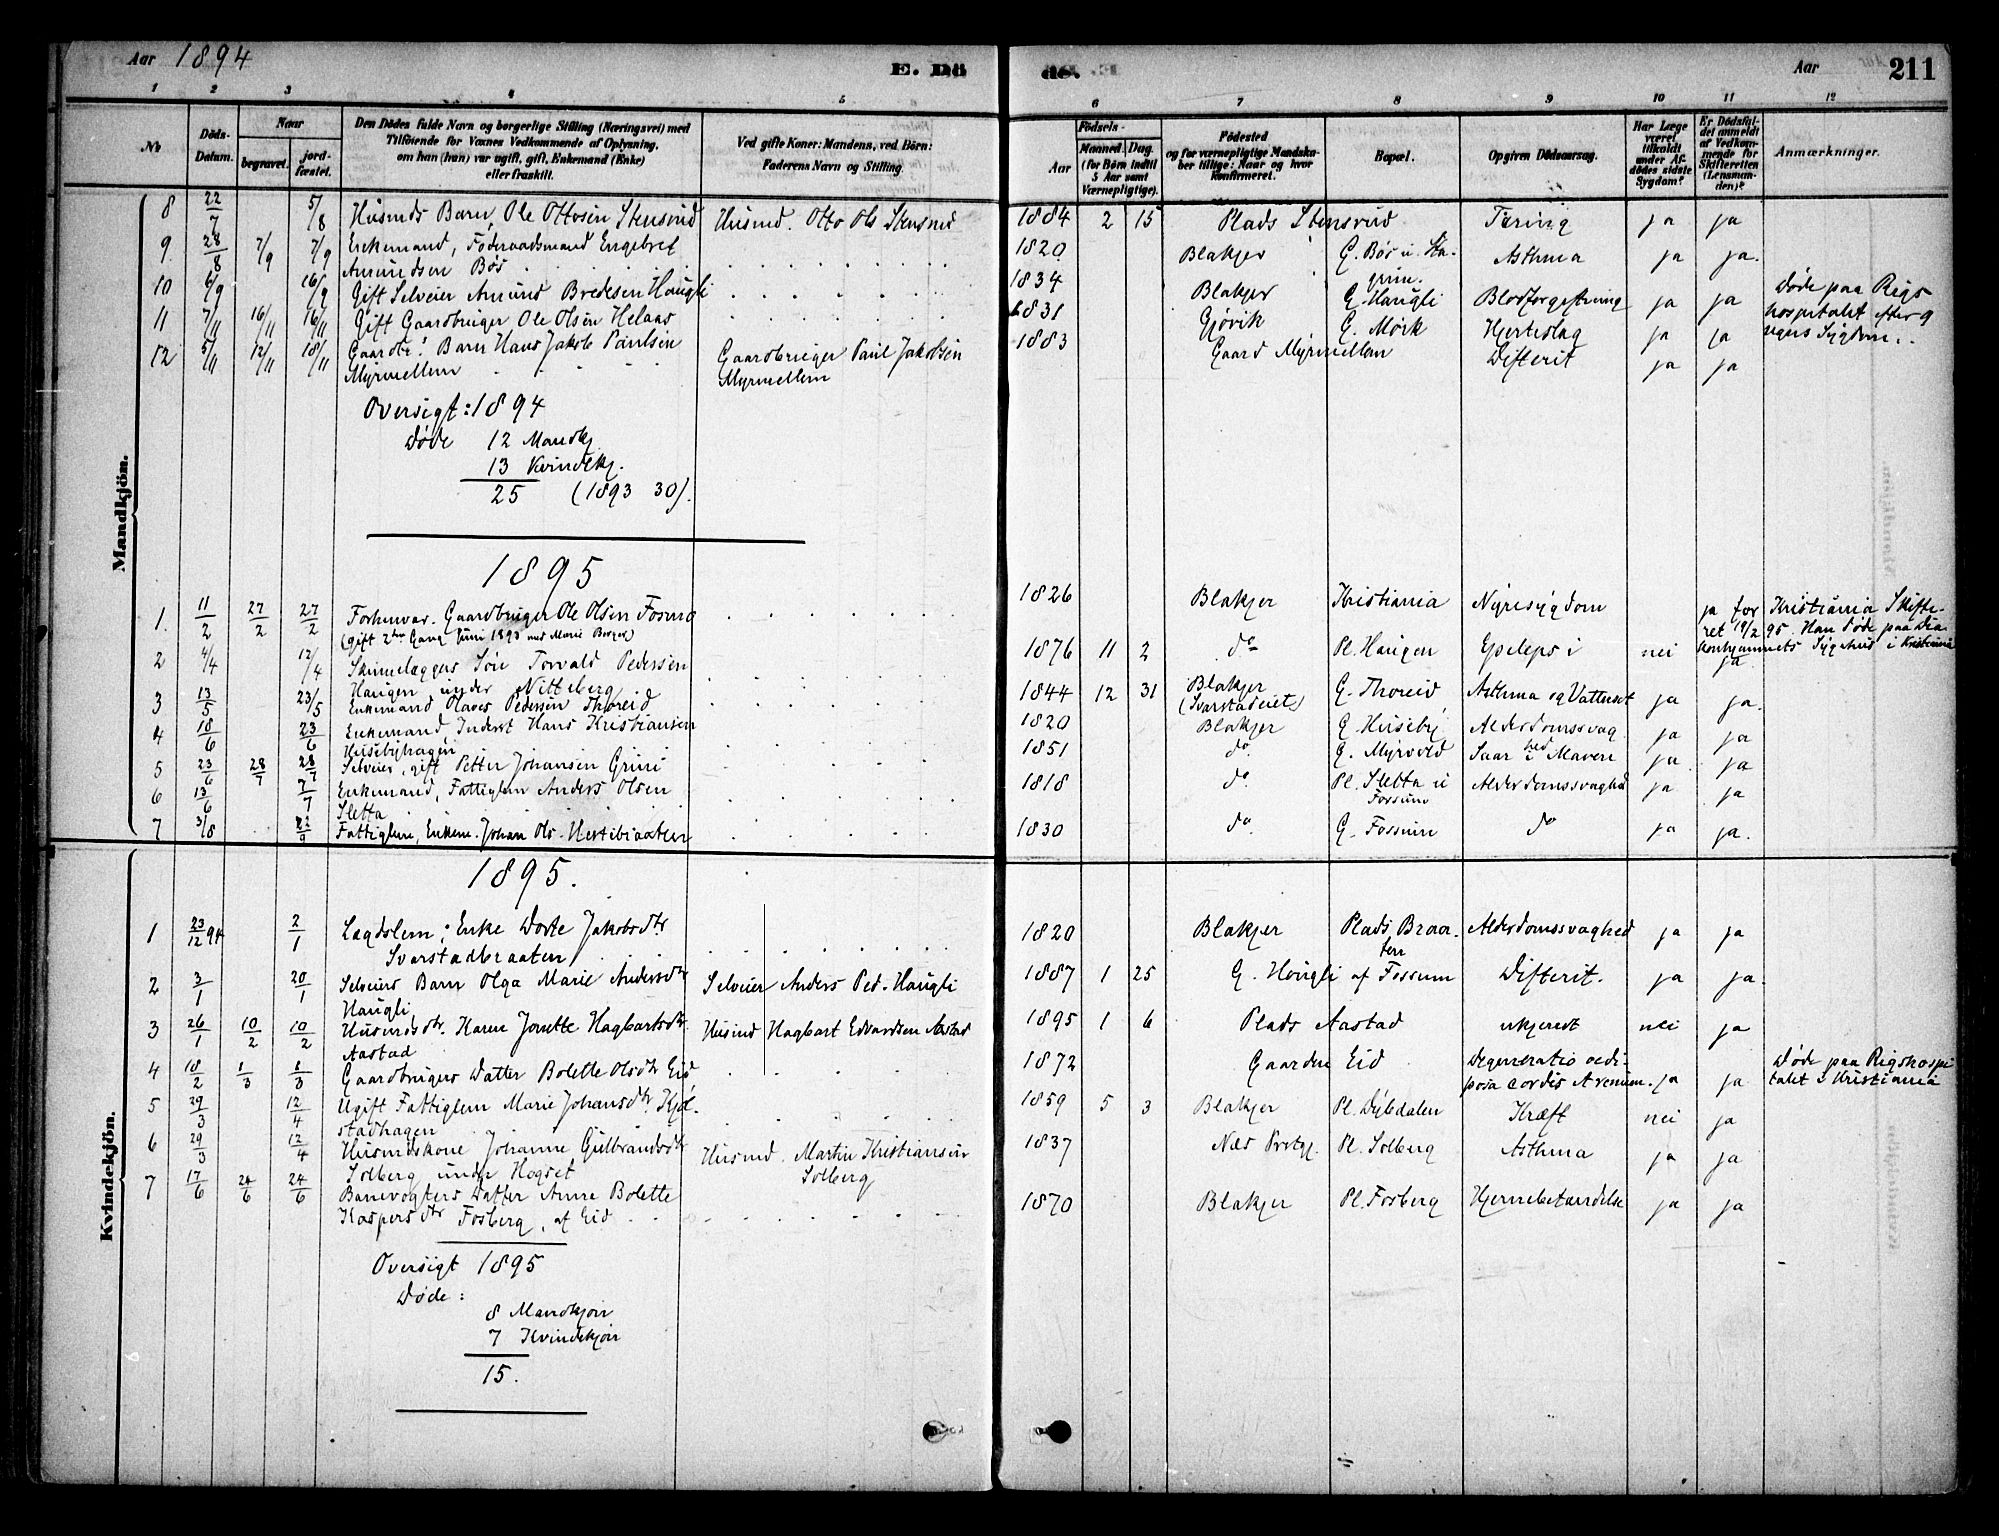 Aar 1894
E. Dö
de.
Aar
211
1 2 3 4 5 6 7 8 9 10 11 12
No
Döds-Datum.
Naar
begravet.
jord-fæstet.
Den Dödes fulde Navn og borgerlige Stilling (Næringsvei) med
Tilföiende for Voxnes Vedkommende af Oplysning,
om han (hun) var ugift, gift, Enkemand (Enke)
eller fraskilt.
Ved gifte Koner: Mandens, ved Börn:
Faderens Navn og Stilling.
Födsels-
Aar
Maaned. Dag.
(for Börn indtil
5 Aar samt
Værnepligtige).
Födested
og for værnepligtige Mandska-
ber tillige: Naar og hvor
konfirmeret.
Bopæl.
Opgiven Dödsaarsag.
Har Læge
været
tilkaldt
under Af-
dødes sidste
Sygdom?
Er Dödsfal-
det anmeldt
af Vedkom-
mende for
Skifteretten
(Lensman-
den)?
Anmærkninger.
Mandkjön.
8 22/7 5/8 Husmds Barn, Ole Ottosen Stensrud Husmd. Otto Ols Stensrud 1884 2 15 Plads Stensrud Tæring ja ja
9 28/8 7/9 7/9 Enkemand, Föderaadsmand Engebret 1820 Blakjer G. Bös u. Ha- Asthma ja ja.
Amundsen Bös grim.
10 6/9 16/9 Gift Selveier Amund Bredesen Haugli 1834 Blakjer G. Haugli Blodforgiftning ja ja Døde paa Rigs
11 7/11 16/11 16/11 Gift Gaardbruger Ole Olsen Helaas 1831 Gjøvik G. Mörk Hjerteslag ja ja hospitalet efter 9
12 5/11 12/11 18/11 Gaardbr. Barn Hans Jakob Paulsen Gaardbruger Paul Jakobsen 1883 Gaard Myrmellem Difterit ja ja ugers Sygdom.
Myrmellem Myrmellem
Oversigt: 1894
Døde 12 Mandkj.
13 Kvindekj.
25 (1893 30).
1895
1. 11/2 27/2 27/2 Forhenvær. Gaardbruger Ole Olsen Fosmo 1826 Blakjer Kristiania Nyresygdom ja for Kristiania Skifte-
(gift 2den Gang Juni 1893 med Marie Berger) ret 19/2 95. Han døde paa Dia-
2 4/4 12/4 Skinnelæggers Søn Torvald Pedersen 1876 11 2 do Pl. Haugen Epilepsi nei ja konhjemmets Sygehus i Kristiania
Haugen under Nitteberg
3 13/5 23/5 Enkemand Olaves Pedersen Thoreid 1844 12 31 Blakjer G. Thoreid Asthma og Vattersot ja ja.
(Svarstadeiet)
4 18/6 23/6 Enkemand Inderst Hans Kristiansen 1820 Blakjer G. Huseby Alderdomssvag- ja ja
Husebyhagen hed
5 23/6 28/7 28/7 Selveier, gift Petter Johansen Grini 1851 do G. Myrvold Saar i Maven ja ja
6 13/6 7/7 Enkemand, Fattiglem Anders Olsen 1818 do Pl. Sletta u Alderdomssvaghed ja ja
Sletta Fossum
7 3/8 22/9 Fattiglem, Enkem. Johan Ols. 1830 do G. Fossum do ja ja.
Kvindekjön.
1895.
1 23/12 94 2/1 Lægdslem, Enke Dorte Jakobsdtr 1820 Blakjer Plads Braa- Alderdomssvaghed ja ja
Svarstadbraaten ten
2 3/1 20/1 Selveiers Barn Olga Marie Andersdtr Selveier Anders Ped. Haugli 1887 1 25 G. Haugli af Fossum Difterit. ja ja.
Haugli
3 26/1 10/2 10/2 Husmdsdtr. Karen Jonette Hagbartsdtr. Husmd Hagbart Edvardsen Aastad 1895 1 6 Plads Aastad ukjendt nei ja
Aastad
4 18/2 8/3 8/3 Gaardbrugers Datter Bolette Olsdtr Eid 1872 Gaarden Eid Degeneratio adi- ja ja Døde paa Rigshospi
posa cordis talet i Kristiania
5 29/3 12/4 Ugift Fattiglem Marie Johansdtr. Kjøl- 1859 5 3 Blakjer Pl. Dybdalen Kræft nei ja
stadhagen
6 29/3 12/4 Husmdskone Johanne Gulbrandsdtr Husmd. Martin Kristiansen 1837 Næs Prstgj. Pl. Solberg Asthma ja ja
Solberg under Hogset Solberg
7 17/6 24/6 24/6 Banevogters Datter Anne Bolette 1870 Blakjer Pl. Fosberg Hjernebetændelse ja ja
Kaspersdtr Fosberg, af Eid
Oversigt 1895
Døde:
8 Mandkjøn
7 Kvindekjøn
15.